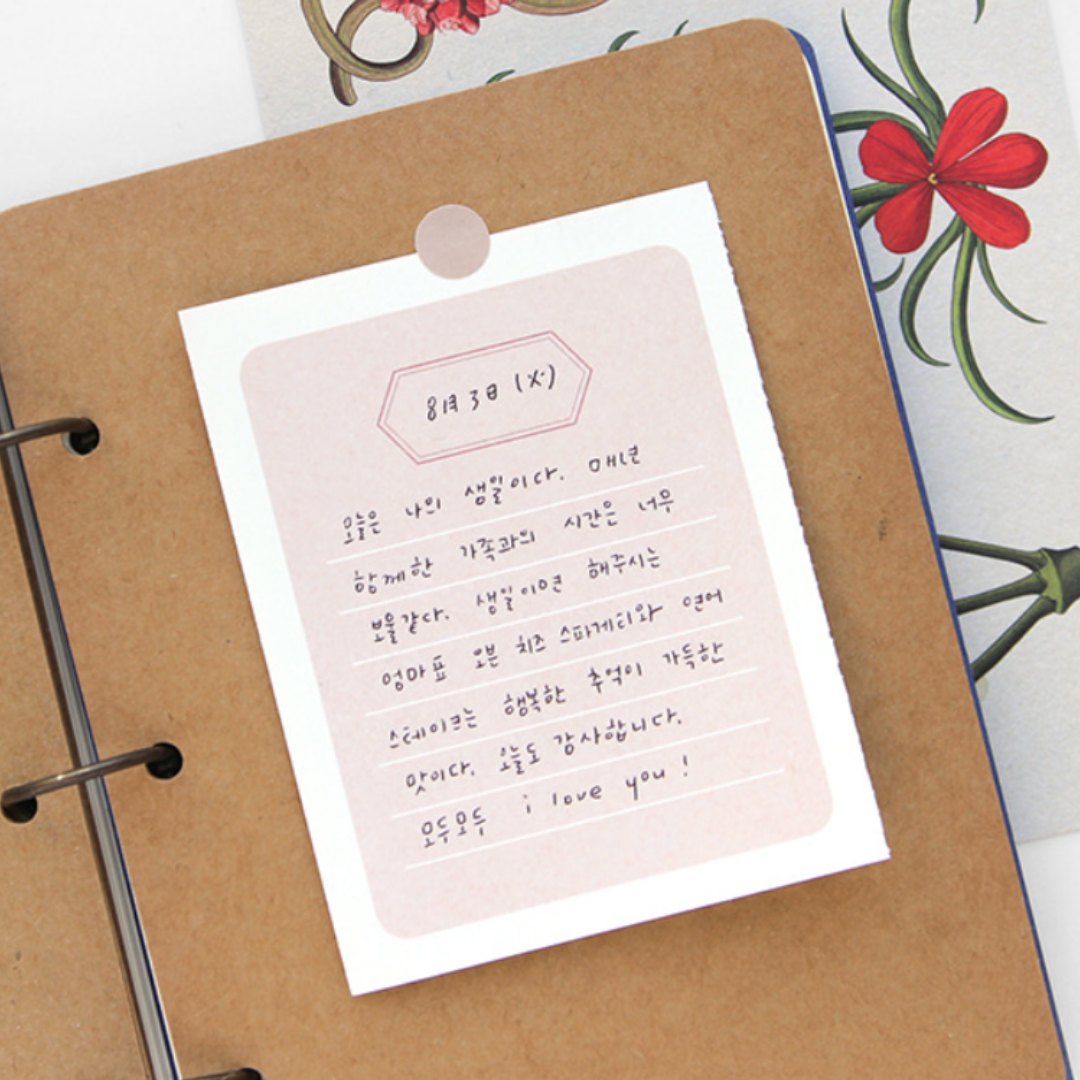 8월 3일 (火)
오늘은 나의 생일이다. 매년
함께한 가족과의 시간은 너무
보물같다. 생일이면 해주시는
엄마표 오븐 치즈 스파게티와 연어
스테이크는 행복한 추억이 가득한
맛이다. 오늘도 감사합니다.
모두모두 i love you !